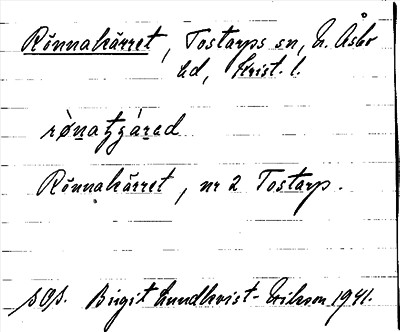 Rönnakärret, Tostarps sn, N. Åsbo
hd, Krist. l.
Rönnakärret, nr 2 Tostarp.
sOs. Birgit Lundkvist-Erikson 1941.